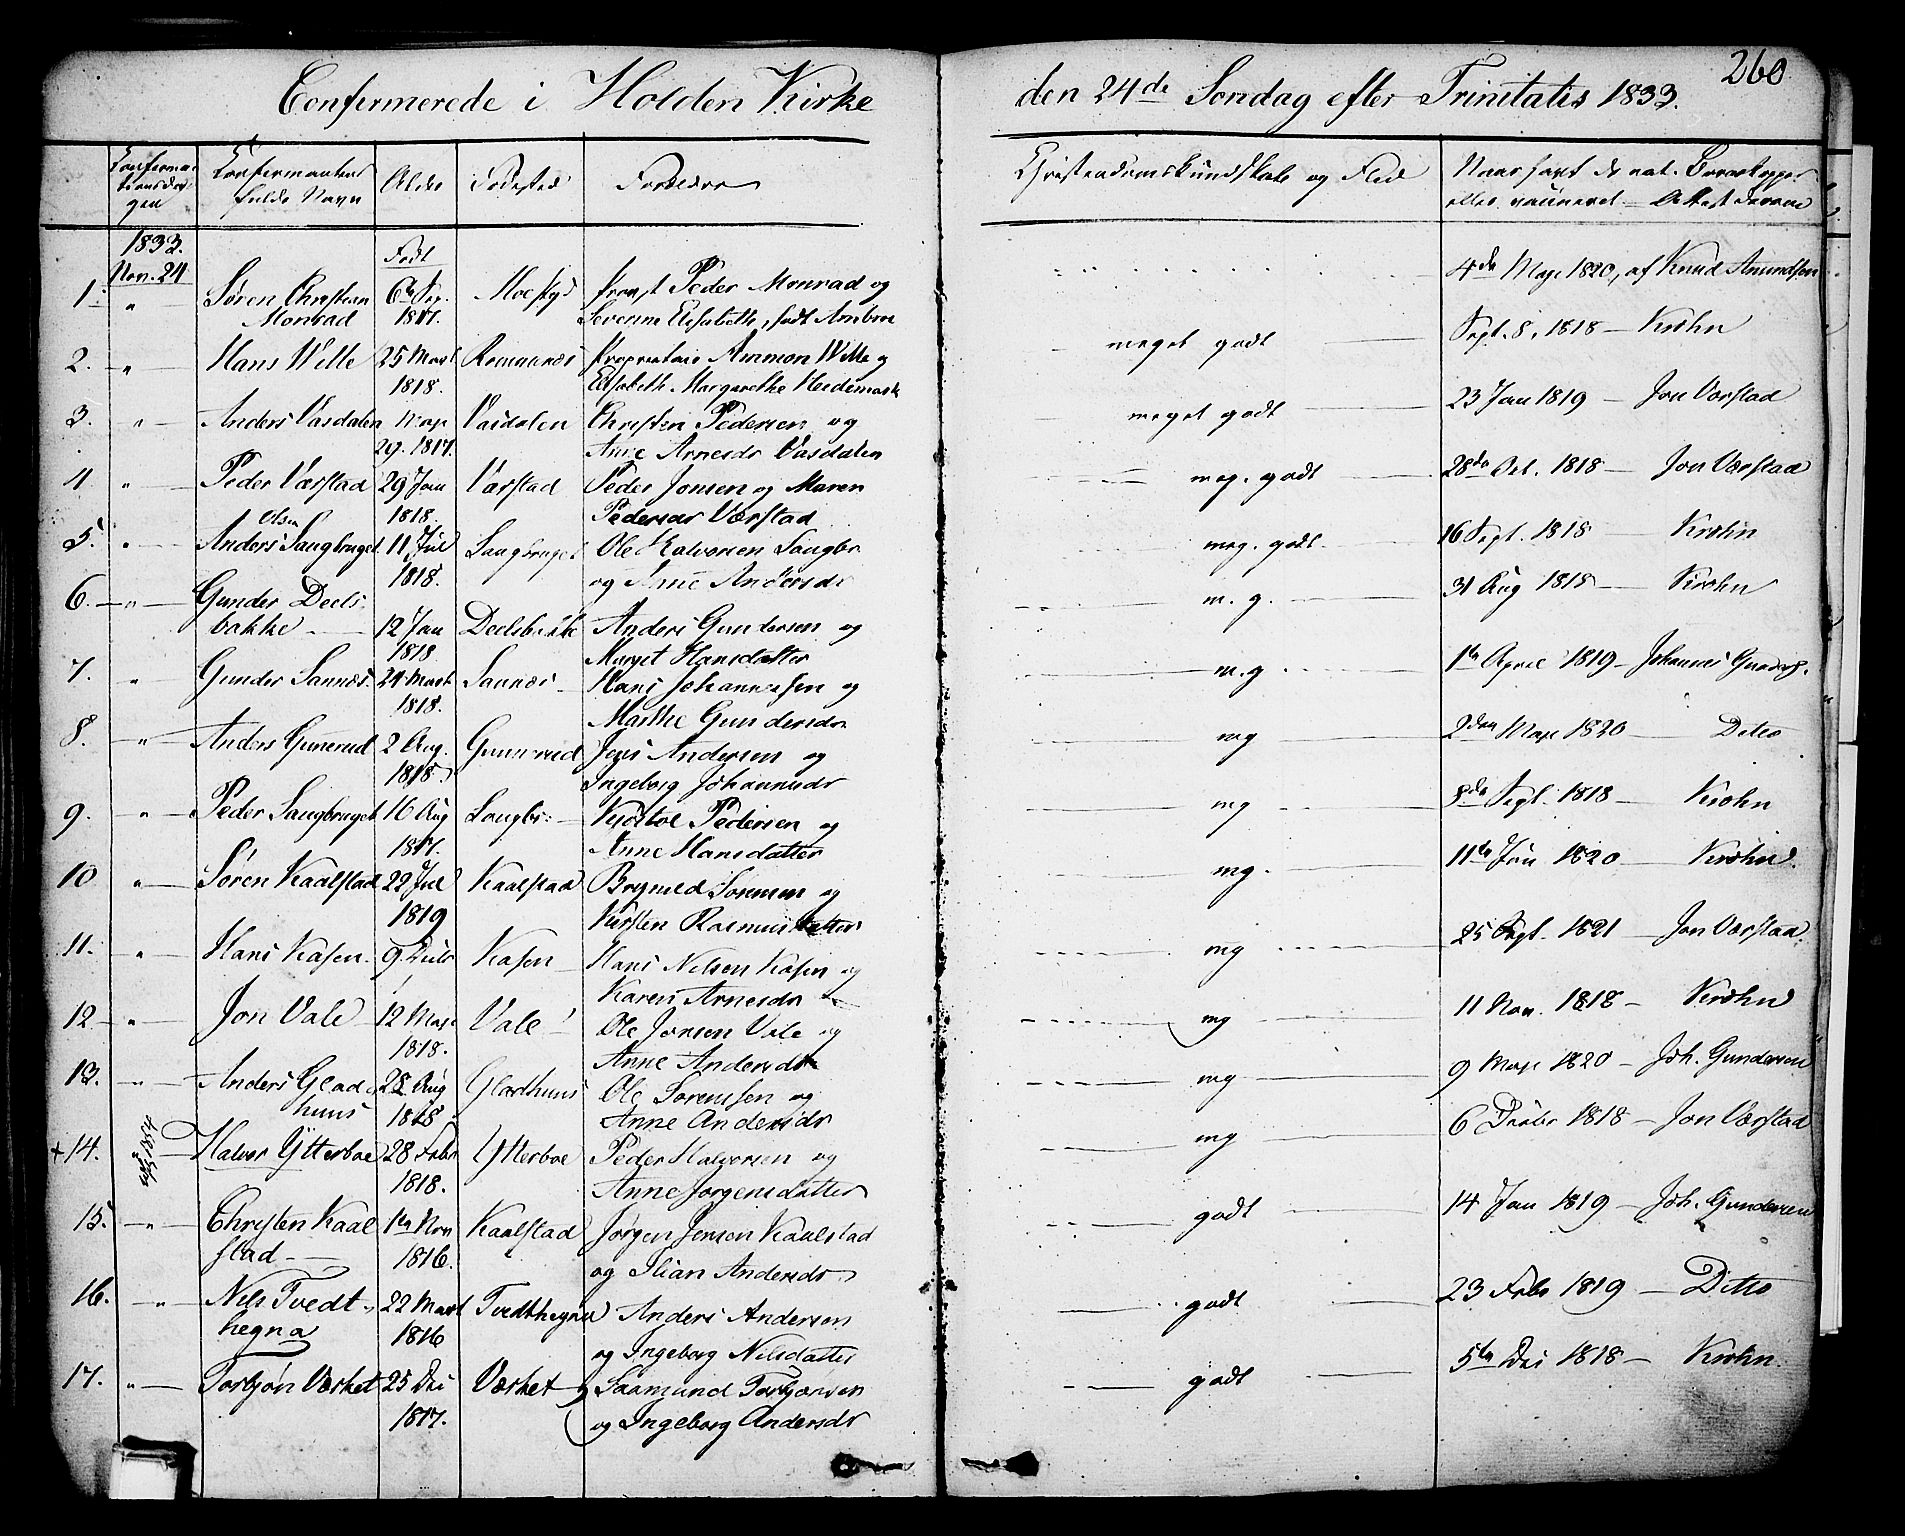 260
Confermerede i Holden Kirke den 24de Søndag efter Trinitatis 1833.
Confermationsdagen
Confermantens fulde Navn
Alder
Fødested
Forældre
Christendomskundskab og Flid
Naar havt de nat. Børnekopper eller vaccineret – Attest derom
1833.
Nov. 24
Født
1. " Søren Christian 6te Sep. Moestyd Provst Peder Monrad og 4de Maje 1820, af Knud Amundsen
Monrad 1817. Severine Elisabeth, født
2. " Hans Wille 25 Mart Romnæs Proprietair Ammon Wille og meget godt Sept. 8, 1818 – Krohn
1818. Elisabeth Margarethe Heidemark
3. " Anders Vasdalen Maje Vasdalen Christen Pedersen og meget godt 23 Jan 1819 – Jon Værstad
29. 1817. Anne Arnesdr Vasdalen
4 " Peder Værstad 29 Jan Værstad Peder Jonsen og Maren meg. godt 28de 1818 – Jon Værstad
1818. Pedersdr Værstad
Olsen
5. " Anders Saugbruget 11 Jul Saugbruget Ole Halvorsen Saugbr meg. godt 16 Sept. 1818 Krohn
1818. og Anne Andersdr
6. " Gunder Deels m. g. 31 Aug 1818 – Krohn
bakke 12 Jan Deelsbakke Anders Gundersen og
1818 Margit Hansdatter
7. " Gunder Sannæs 24 Mart Sannæs Hans Johannessen og m. g 1te April 1819 – Johannes Gunders.
1818. Marthe Gundersdr
8. " Anders Gunnerud 2 Aug. Gunnerud Jens Andersen og mg 2den Maje 1820 – Ditto
1818 Ingeborg Johannesdr
9. " Peder Saugbruget 16 Aug Saugbr: Kittel Pedersen og mg 8de Sept. 1818 – Krohn
1817. Anne Hansdatter
10 " Søren Kaalstad 22 Jul Kaalstad Brynild Sørensen og mg. 11te 1820 – Krohn.
1819 Kirsten Rasmusdatter
11. " Hans Kasen 9 Kasen Hans Nilsen Kasen og mg 25 Sept. 1821 – Jon Værstad
Karen Arnesdr
12 " Jon Vale 12 Maje Vale Ole Jonsen Vale og mg 11 Nov. 1818 – Krohn
1818. Anne Andersdr
13. " Anders Glad 28 Aug Gladhuus Ole Sørensen og mg 9 Maje 1820 – Joh. Gundersen
huus 1818 Anne Andersdr
+14. Halvor Ytterboe 28 Febr Ytterboe Peder Halvorsen og mg 6 1818 – Jon Værstad
1818. Anne Jørgensdatter
15. " Christen Kaal 1te Nov Kaalstad Jørgen Jensen Kaalstad godt 14 Jan 1819 – Joh. Gundersen
stad 1816. og Ilian Andersdr
16. " Nils Tvedt 22 Mart Tvedthegna Anders Andersen godt 23 Febr 1819 – Ditto
hegna 1816 og Ingeborg Nilsdatter
17. " Torbjøn Værket 25 Dec Værket Saamund Torbjønsen godt 5te Dec 1818 – Krohn.
1817. og Ingeborg Andersdr